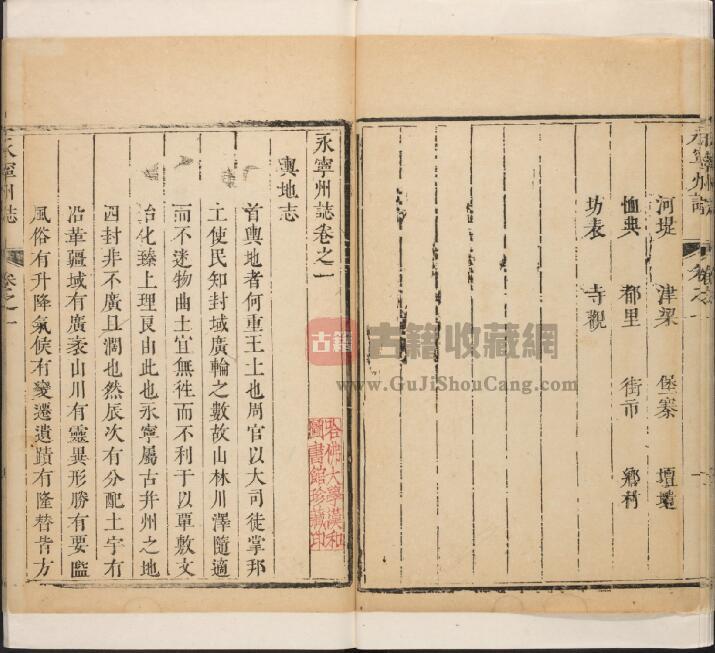 河堤　津梁　堡寨　壇壝
恤典　都里　街市　鄉村
坊表　寺觀
永寧州誌卷之一
輿地志
首輿地者何重王土也周官以大司徒掌邦
土使民知封域廣輪之數故山林川澤隨適
而不迷物曲土宜無徃而不利于以覃敷文
治化臻上理良由此也永寧屬古幷州之地
四封非不廣且濶也然辰次有分配土宇有
沿革疆域有廣袤山川有靈異形勝有要隘
風俗有升降氣候有變遷遺蹟有隆替昔方
永寧州誌
卷之一
哈佛大學漢和
圖書館珍藏印
古籍
古籍收藏網
www.GuJiShouCang.com